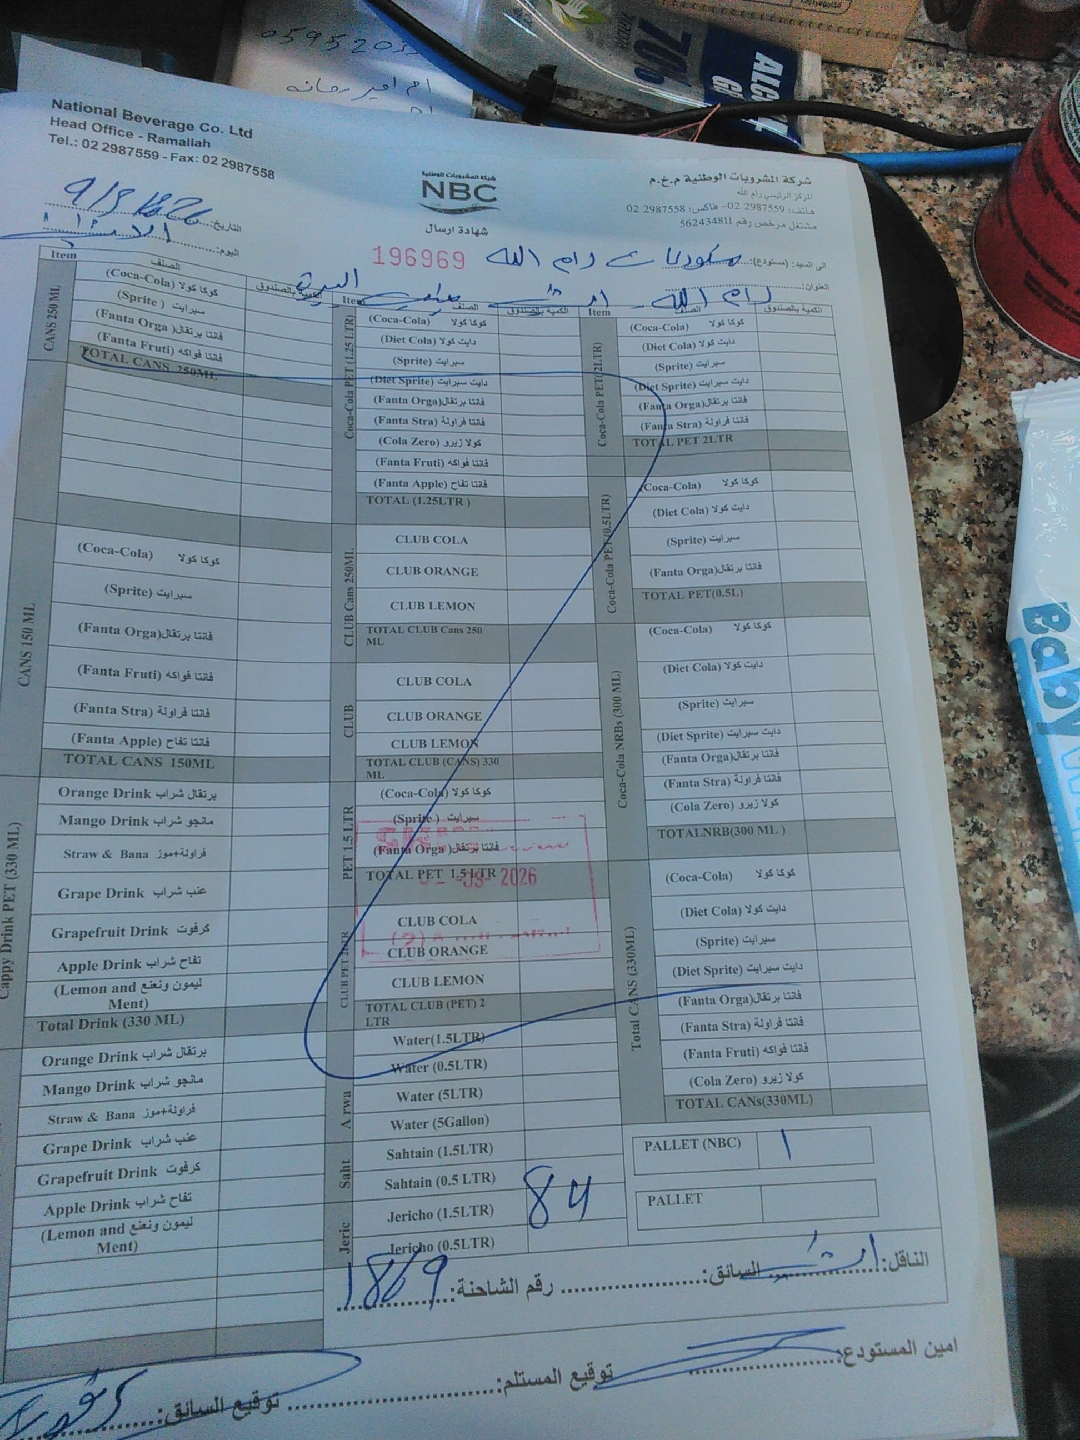 ام امير رمانه
70%
ALCOHOL
National Beverage Co. Ltd
Head Office - Ramallah
Tel.: 02 2987559 - Fax: 02 2987558
شركة المشروبات الوطنية
NBC
شهادة ارسال
196969
شركة المشروبات الوطنية م.خ.م
المركز الرئيسي رام الله
هاتف: 2987559 02- فاكس: 2987558 02
مشتغل مرخص رقم 562434811
التاريخ: 9/3/2026
اليوم: الاثنين
الى السيد: (مستودع): رام الله
العنوان: رام الله
Item الصنف الكمية بالصندوق
CANS 250 ML
(Coca-Cola) كوكا كولا
(Sprite) سبرايت
(Fanta Orga) فانتا برتقال
(Fanta Fruti) فانتا فواكه
TOTAL CANS 250ML
CANS 150 ML
(Coca-Cola) كوكا كولا
(Sprite) سبرايت
(Fanta Orga) فانتا برتقال
(Fanta Fruti) فانتا فواكه
(Fanta Stra) فانتا فراولة
(Fanta Apple) فانتا تفاح
TOTAL CANS 150ML
Cappy Drink PET (330 ML)
Orange Drink برتقال شراب
Mango Drink مانجو شراب
Straw & Bana فراولة+موز
Grape Drink عنب شراب
Grapefruit Drink كرفوت
Apple Drink تفاح شراب
(Lemon and ليمون ونعنع
Ment)
Total Drink (330 ML)
Orange Drink برتقال شراب
Mango Drink مانجو شراب
Straw & Bana فراولة+موز
Grape Drink عنب شراب
Grapefruit Drink كرفوت
Apple Drink تفاح شراب
(Lemon and ليمون ونعنع
Ment)
Item الصنف الكمية بالصندوق
Coca-Cola PET (1.25 LTR)
(Coca-Cola) كوكا كولا
(Diet Cola) دايت كولا
(Sprite) سبرايت
(Diet Sprite) دايت سبرايت
(Fanta Orga) فانتا برتقال
(Fanta Stra) فانتا فراولة
(Cola Zero) كولا زيرو
(Fanta Fruti) فانتا فواكه
(Fanta Apple) فانتا تفاح
TOTAL (1.25LTR )
CLUB Cans 250ML
CLUB COLA
CLUB ORANGE
CLUB LEMON
TOTAL CLUB Cans 250
ML
CLUB
CLUB COLA
CLUB ORANGE
CLUB LEMON
TOTAL CLUB (CANS) 330
ML
PET 1.5 LTR
(Coca-Cola) كوكا كولا
(Sprite) سبرايت
(Fanta Orga) فانتا برتقال
TOTAL PET 1.5 LTR
2026
CLUB PET 2LTR
CLUB COLA
CLUB ORANGE
CLUB LEMON
TOTAL CLUB (PET) 2
LTR
Arwa
Water(1.5LTR)
Water (0.5LTR)
Water (5LTR)
Water (5Gallon)
Saht
Sahtain (1.5LTR)
Sahtain (0.5 LTR)
Jeric
Jericho (1.5LTR) 84
Jericho (0.5LTR)
Item الصنف الكمية بالصندوق
Coca-Cola PET(2LTR)
(Coca-Cola) كوكا كولا
(Diet Cola) دايت كولا
(Sprite) سبرايت
(Diet Sprite) دايت سبرايت
(Fanta Orga) فانتا برتقال
(Fanta Stra) فانتا فراولة
TOTAL PET 2LTR
Coca-Cola PET(0.5LTR)
(Coca-Cola) كوكا كولا
(Diet Cola) دايت كولا
(Sprite) سبرايت
(Fanta Orga) فانتا برتقال
TOTAL PET(0.5L)
Coca-Cola NRBs (300 ML)
(Coca-Cola) كوكا كولا
(Diet Cola) دايت كولا
(Sprite) سبرايت
(Diet Sprite) دايت سبرايت
(Fanta Orga) فانتا برتقال
(Fanta Stra) فانتا فراولة
(Cola Zero) كولا زيرو
TOTALNRB(300 ML )
Total CANS (330ML)
(Coca-Cola) كوكا كولا
(Diet Cola) دايت كولا
(Sprite) سبرايت
(Diet Sprite) دايت سبرايت
(Fanta Orga) فانتا برتقال
(Fanta Stra) فانتا فراولة
(Fanta Fruti) فانتا فواكه
(Cola Zero) كولا زيرو
TOTAL CANs(330ML)
PALLET (NBC) 1
PALLET
الناقل: السائق: رقم الشاحنة:
امين المستودع: توقيع المستلم: توقيع السائق:
Baby